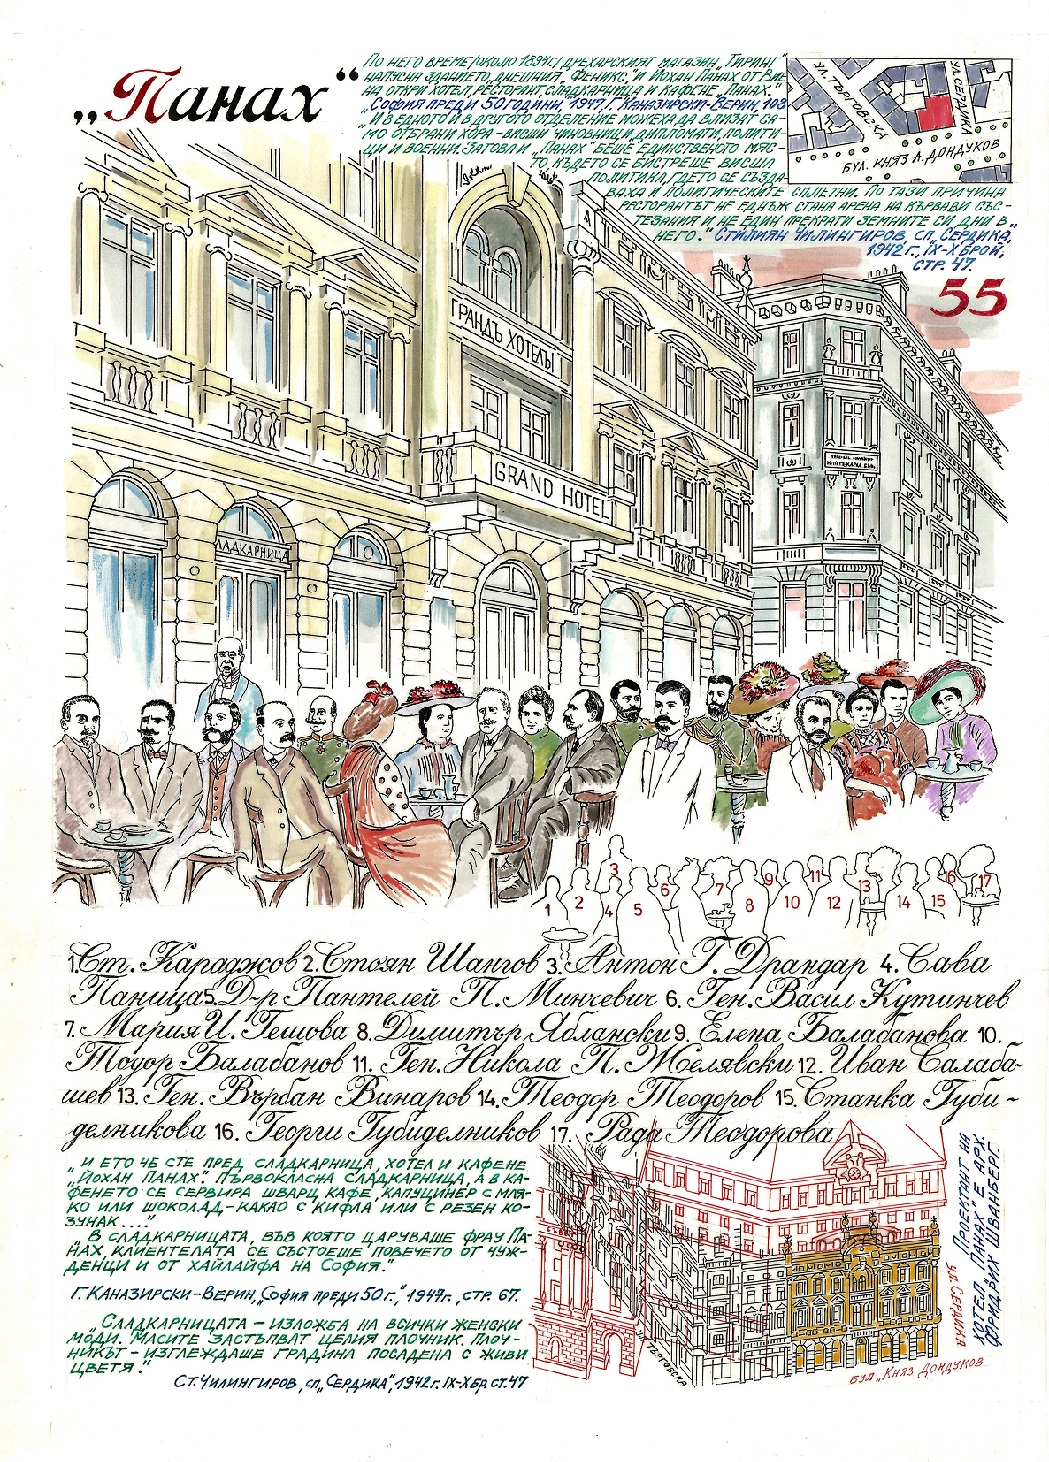 „Панах“
По него време (около 1894г.) дрехарският магазин „Тиринг“
напусна зданието, днешния „Феникс“, и Йохан Панах от Вие-
на откри хотел, ресторант, сладкарница и кафене „Панах.“
„София преди 50 години, 1947, Г. Каназирски-Верин, 108
„И в едното и в другото отделение можеха да влизат са-
мо отбрани хора - висши чиновници, дипломати, полити-
ци и военни. Затова и „Панах“ беше единственото мяс-
то, където се бистреше висша
политика, гдето се създа-
ваха и политическите сплетни. По тази причина
ресторантът не еднъж стана арена на кървави със-
тезания и не един прекрати земните си дни в
него.“ Стилиян Чилингиров, сп. Сердика,
1942 г., IX-X брой,
стр. 47.
ул. Търговска
ул. Сердика
бул. Княз А. Дондуков
55
ГРАНДЪ ХОТЕЛЪ
GRAND HOTEL
ЛАДКАРНИЦА
1 2 3 4 5 6 7 8 9 10 11 12 13 14 15 16 17
1. Ст. Караджов 2. Стоян Шангов 3. Антон Г. Драндар 4. Сава
Паница 5. Д-р Пантелей П. Минчевич 6. Ген. Васил Кутинчев
7. Мария И. Гешова 8. Димитър Яблански 9. Елена Балабанова 10.
Тодор Балабанов 11. Ген. Никола П. Желявски 12. Иван Салаба-
шев 13. Ген. Върбан Винаров 14. Теодор Теодоров 15. Станка Губи-
делникова 16. Георги Губиделников 17. Рада Теодорова
„И ето че сте пред сладкарница, хотел и кафене
„Йохан Панах“. Първокласна сладкарница, а в ка-
фенето се сервира шварц кафе, капуцинер с мля-
ко или шоколад-какао с кифла или с резен ко-
зунак....“
„В сладкарницата, във която царуваше фрау Па-
нах, клиентелата се състоеше повечето от чуж-
денци и от хайлайфа на София.“
Г. Каназирски-Верин, „София преди 50 г.,“ 1947г., стр. 67.
„Сладкарницата - изложба на всички женски
моди. Масите застъпват целия площник. Пло-
чникът - изглеждаше градина посадена с живи
цветя.“
Ст. Чилингиров, сп. „Сердика“, 1942 г. IX-X бр. ст. 47
Проектант на
хотел „Панах“ е арх.
Фридрих Шванберг.
ул. Сердика
Търговска
бул. „Княз Дондуков